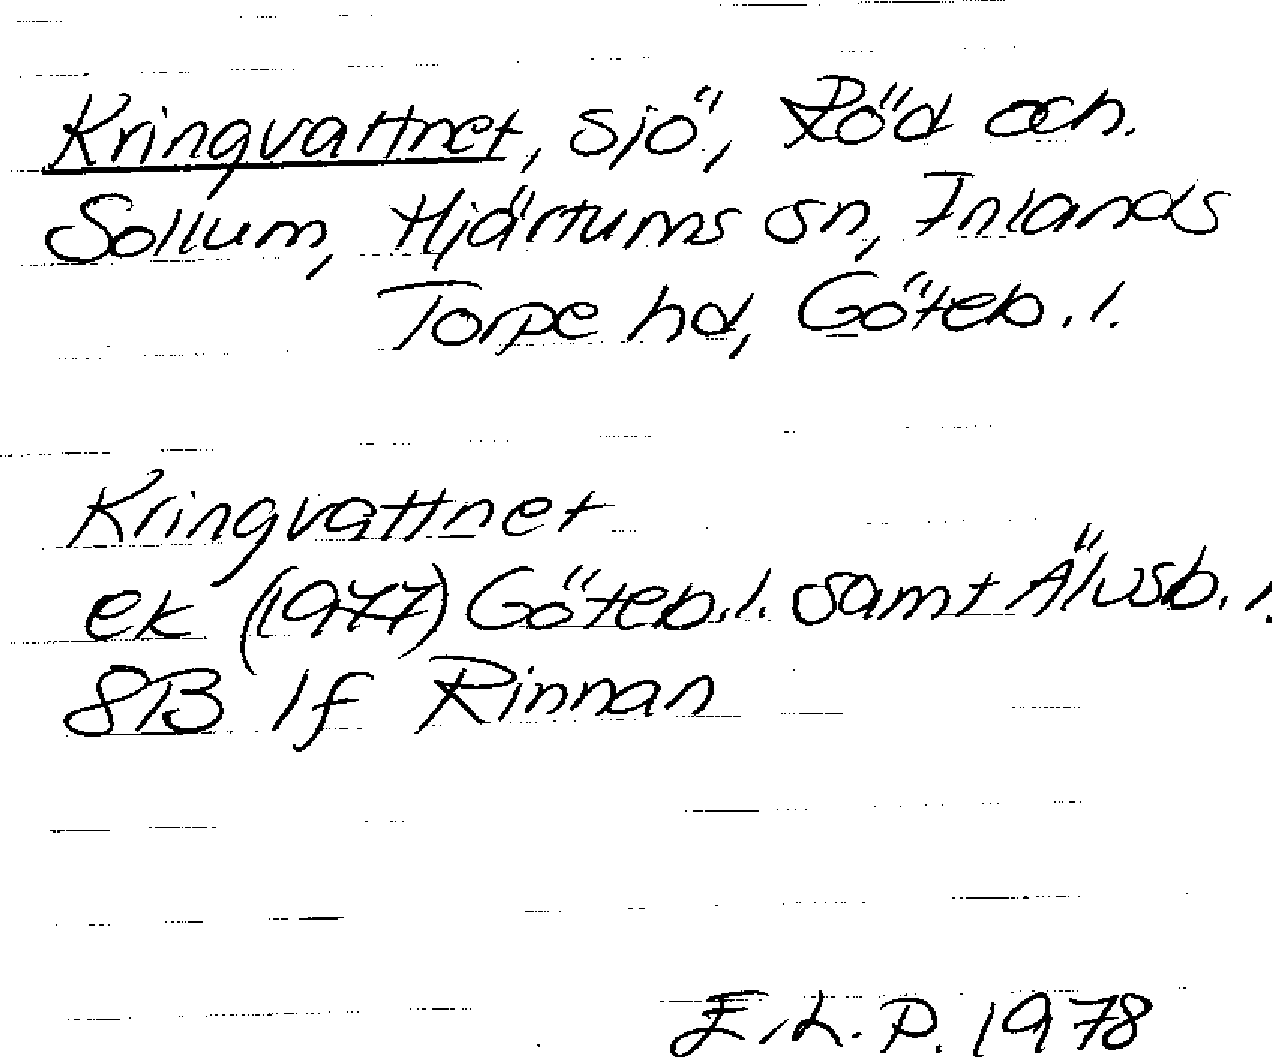 Kringvattnet, sjö, Röd och
Sollum, Hjärtums sn, Inlands
Torpe hd, Göteb.l.
Kringvattnet
ek (1977) Göteb.l. samt Älvsb.l.
8B 1f Rinnan
E.L.P. 1978